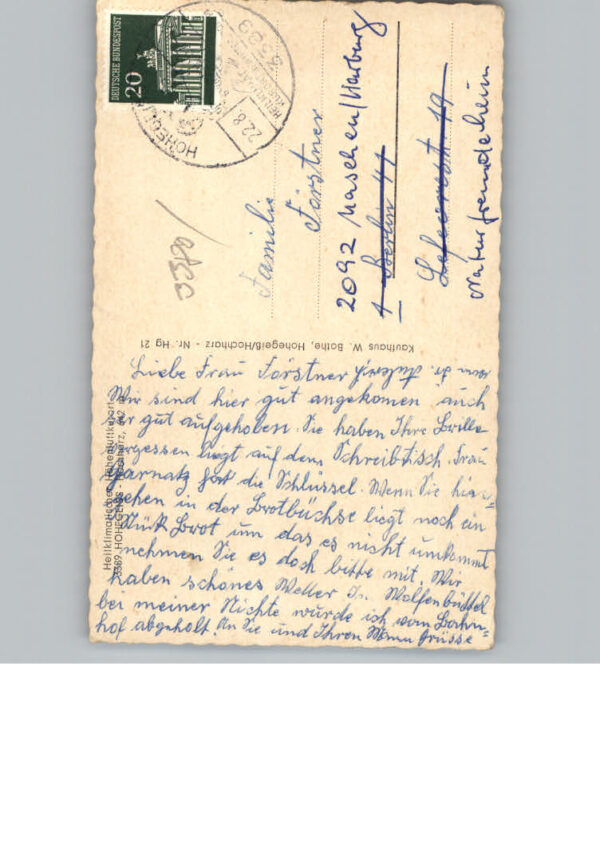 DEUTSCHE BUNDESPOST
20
HOHEGEI
22.8.
Familie
Förstner
2092 Maschen/Harburg
1 Berlin 41
19
Naturfreundeheim
Kaufhaus W. Bothe, Hohegeiß/Hochharz - Nr. Hg 21
Heilklimatischer Höhenluftkurort
3389 HOHEGEISS - Hochharz, 642 m
Liebe Frau Förstner
Wir sind hier gut angekomen auch
gut aufgehoben. Sie haben Ihre Brille
vergessen liegt auf dem Schreibtisch. Frau
Garnatz hat die Schlüssel. Wenn Sie hin-
gehen in der Brotbüchse liegt noch ein
Stük Brot um das es nicht umkommt
nehmen Sie es doch bitte mit. Wir
haben schönes Wetter In Wolfenbüttel
bei meiner Nichte wurde ich vom Bahn-
hof abgeholt. An Sie und Ihren Mann Grüsse